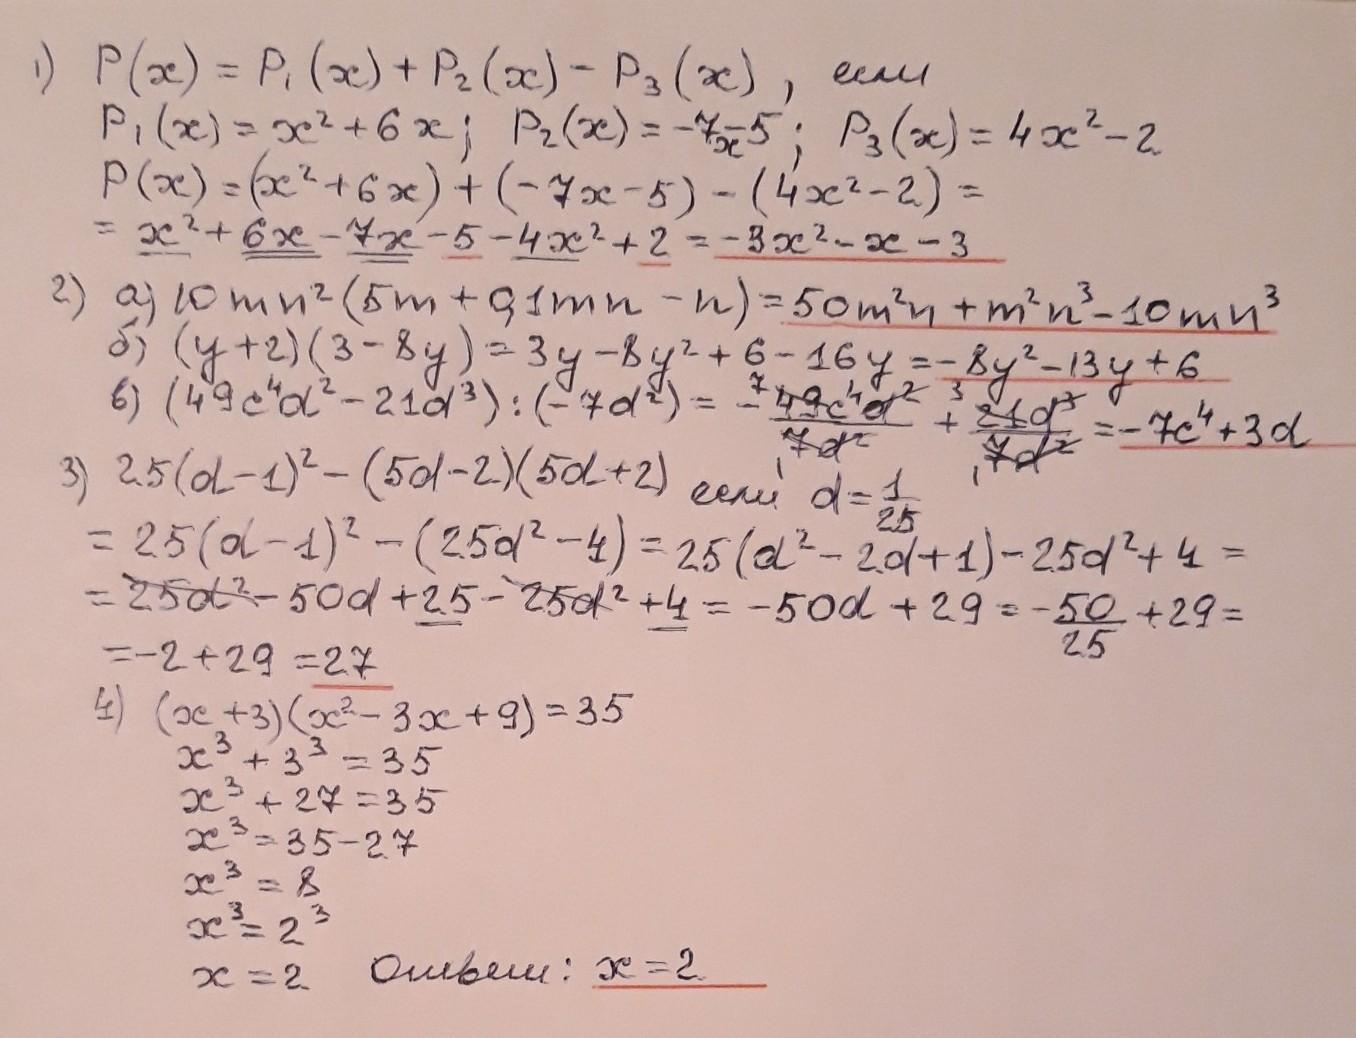 1) P(x) = P₁(x) + P₂(x) - P₃(x), если
P₁(x) = x² + 6x; P₂(x) = -7x-5; P₃(x) = 4x² - 2
P(x) = (x² + 6x) + (-7x - 5) - (4x² - 2) =
= x² + 6x - 7x - 5 - 4x² + 2 = -3x² - x - 3
2) а) 10mn²(5m + 0,1mn - n) = 50m²n + m²n³ - 10mn³
б) (y+2)(3 - 8y) = 3y - 8y² + 6 - 16y = -8y² - 13y + 6
в) (49c⁴d² - 21d³) : (-7d²) = - 7 49c⁴d²/7d² 1 + 3 21d³/7d² 1 = -7c⁴ + 3d
3) 25(d-1)² - (5d-2)(5d+2) если d = 1/25
= 25(d-1)² - (25d² - 4) = 25(d² - 2d + 1) - 25d² + 4 =
= 25d² - 50d + 25 - 25d² + 4 = -50d + 29 = -50/25 + 29 =
= -2 + 29 = 27
4) (x+3)(x² - 3x + 9) = 35
x³ + 3³ = 35
x³ + 27 = 35
x³ = 35 - 27
x³ = 8
x³ = 2³
x = 2 Ответ: x = 2